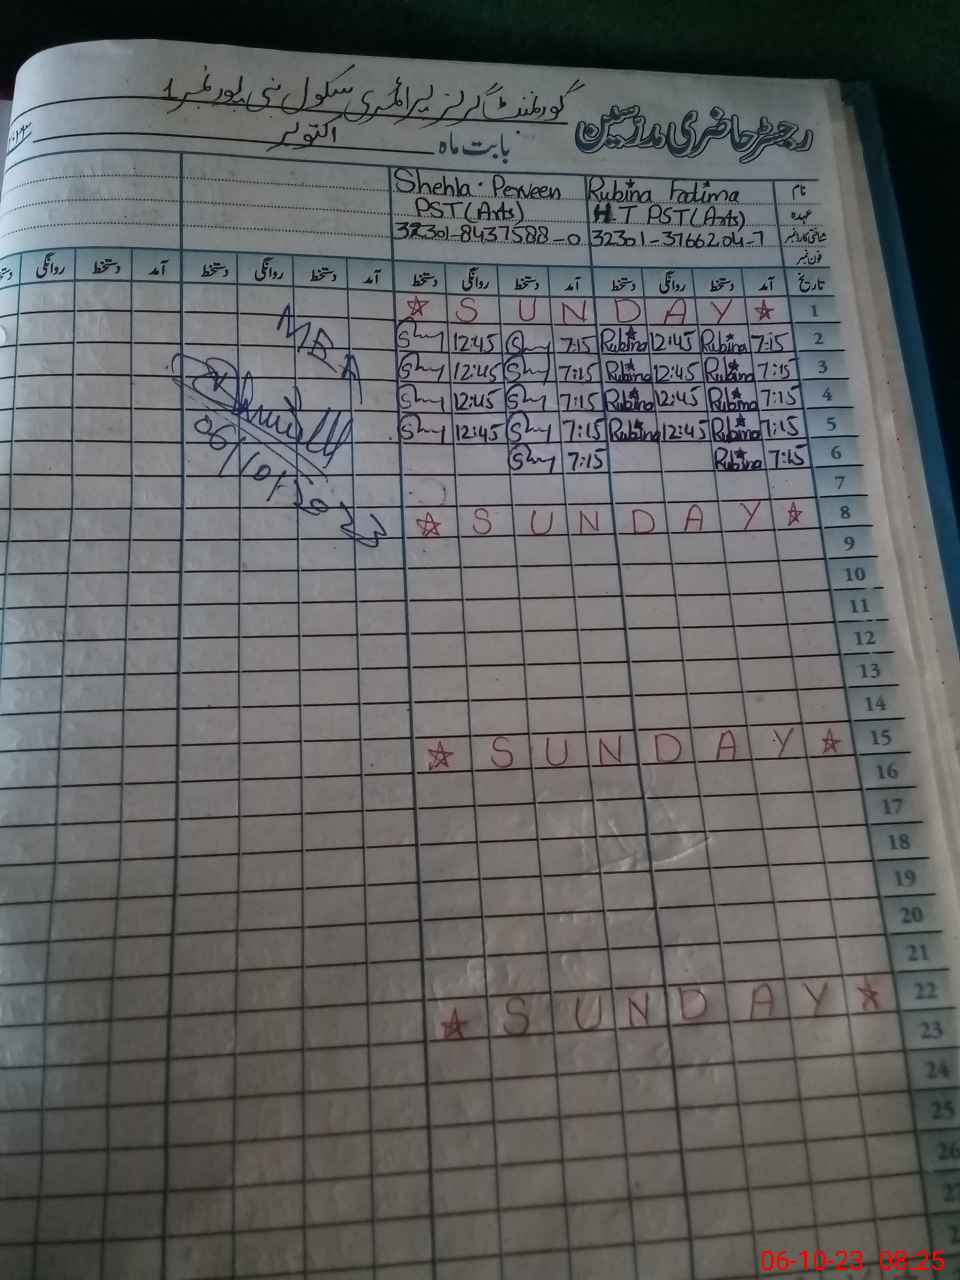 رجسٹر حاضری مدرسین گورنمنٹ گرلز پرائمری سکول نبی پور نمبر 1
بابت ماہ اکتوبر
نام Rubina Fatima Shehla Perveen
عہدہ H.T PST(Arts) PST(Arts)
شناختی کارڈ نمبر 32301-3766204-7 32301-8437588-0
فون نمبر
تاریخ آمد دستخط روانگی دستخط آمد دستخط روانگی دستخط آمد دستخط روانگی دستخط آمد دستخط روانگی دستخط
1 ☆ S U N D A Y ☆
2 7:15 Rubina 12:45 Rubina 7:15 12:45
3 7:15 Rubina 12:45 Rubina 7:15 12:45
4 7:15 Rubina 12:45 Rubina 7:15 12:45
5 7:15 Rubina 12:45 Rubina 7:15 12:45
6 7:15 Rubina 7:15
7
8 ☆ S U N D A Y ☆
9
10
11
12
13
14
15 ☆ S U N D A Y ☆
16
17
18
19
20
21
22 ☆ S U N D A Y ☆
23
24
25
26
27
MEA
06/10/2023
06-10-23 08:25